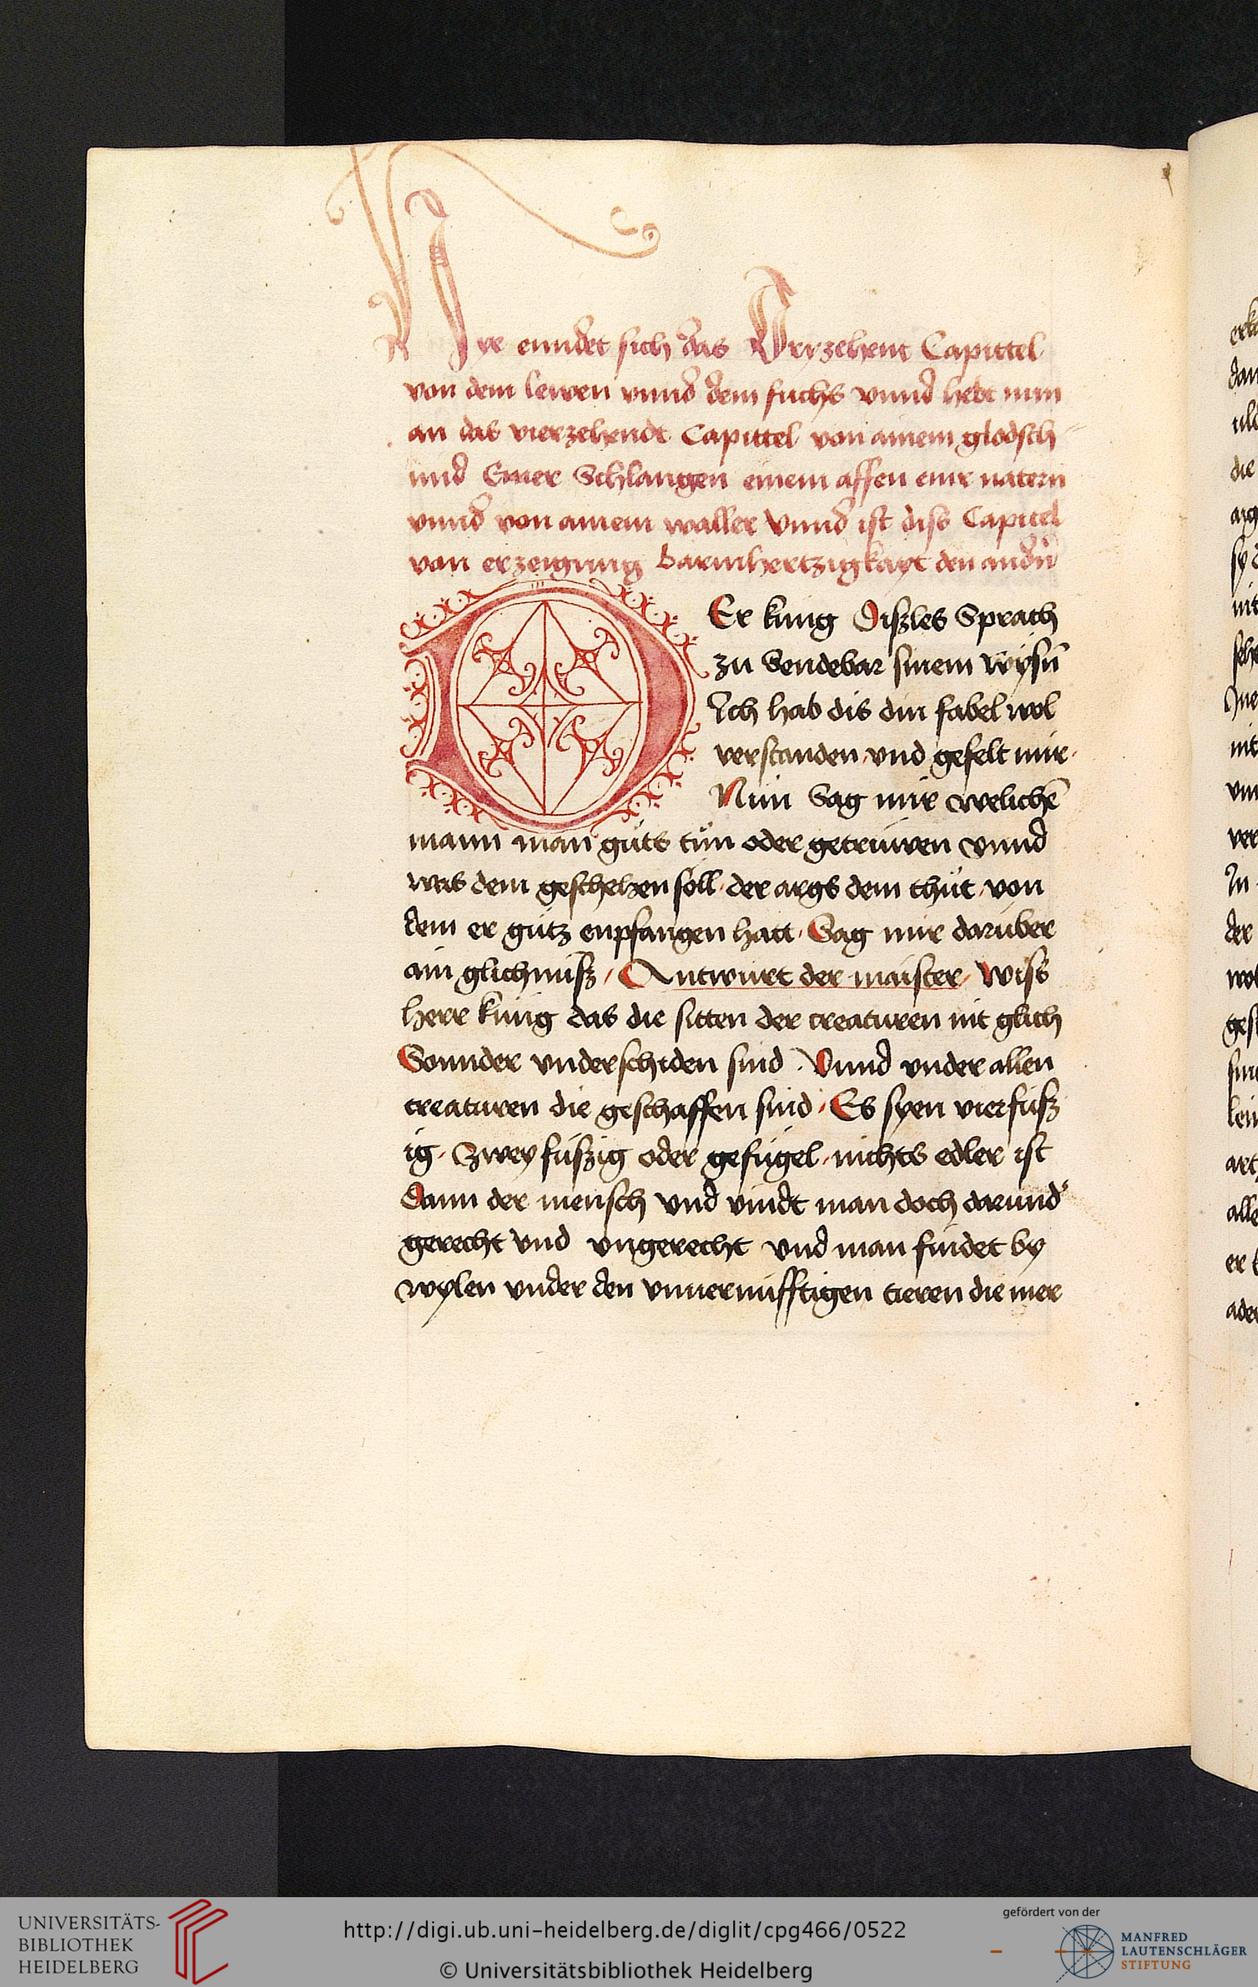 Hye enndet sich das Dryzehent Capittel
von dem lewen vnnd dem fuchs vnnd hebt nun
an das vierzehende Capittel von ainem glodsch
und Einer Schlangen einem affen einr natern
vnnd von ainem waller Vnnd ist diss Capitel
von erzeigung barmhertzigkayt den andn̄
Er kung Diszles Sprach
zu Sendebar sinem wysn̄
Ich hab dis din fabel wol
verstanden vnd gefelt mir·
Nun Sag mir welichē
mann man guts tun oder getruwen vnnd
was dem geschehen soll· der args dem thut· von
dem er gutz enpfangen hatt· Sag mir daruber
ain glichnusz / Antwurt der maister / Wiss
herr kung das die sitten der creaturen nit glich
Sonnder underschiden sind · Vnnd vnder allen
creaturen die geschaffen sind · Es syen vierfusz
ig· Zwey fuszig oder gefugel· nichts edler ist
Dann der mensch vnd vindt man doch darund'
gerecht vnd vngerecht vnd man findet by
wylen vnder den vnuernufftigen tieren die mer
UNIVERSITÄTS-
BIBLIOTHEK
HEIDELBERG
http://digi.ub.uni-heidelberg.de/diglit/cpg466/0522
© Universitätsbibliothek Heidelberg
gefördert von der
MANFRED
LAUTENSCHLÄGER
STIFTUNG